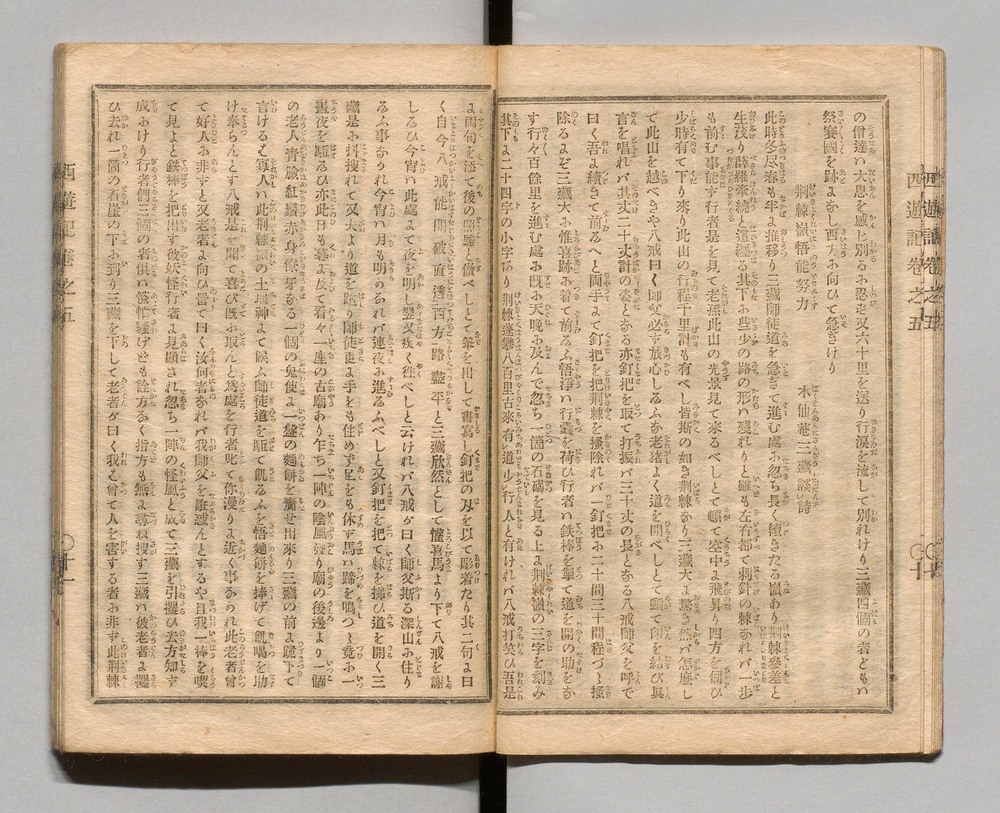 の僧達ハ大恩を感じ別るゝお忍ぞ又六十里を送り行涙を流して別れけり三藏四個の者どもハ
祭賽國を跡よなし西方お向ひて急ぎけり
荊棘嶺悟能努力　木仙菴三藏談詩
此時冬尽春も半よ推移り三藏師徒道を急ぎて進む處お忽ち長く續きたる嶺あり荊棘參差と
生茂り薜蘿牽繞る這繞る其下お些少の路の形ハ殘れりと雖も左右都て刺針の棘なれバ一歩
も前む事能ず行者是を見て老孫此山の光景見て來るべしとて頓て空中よ飛昇り四方を伺ひ
少時有て下り來り此山の行程千里計も有べし皆斯の如き荊棘なり三藏大よ驚き然バ怎麼し
て此山を越べきや八戒曰く師父必ず放心し給ふお老猪よく道を開べしとて頭て印を結び眞
言を唱れバ其丈二十丈計の姿となる亦釘把を取て打振バ三十丈の長となる八戒師父を呼で
曰く吾よ續せて前給へと両手よて釘把を把荊棘を搔除れバ一釘把お二十間三十間程づゝ搔
除るよぞ三藏大お惟喜跡お着て前給ふ悟淨ハ行囊を荷ひ行者ハ鉄棒を掣て道を開の助をな
す行々百餘里を進む處お既お天晩お及んで忽ち一箇の石碣を見る上よ荊棘嶺の三字を刻み
其下よ二十四字の小字あり 荊棘蓬攀八百里古來有レ道少レ行 人と有けれバ八戒打笑ひ吾是
西遊記卷之五
〇十
よ両句を添て後の照證と傚べしとて筆を出して書寫し釘把の刄を以て彫着たり其二句よ曰
く自今八戒能開破直透西方路盡平と三藏欣然として懽喜馬より下て八戒を謝
し給ひ今宵ハ此處よて夜を明し翌又疾く徃べしと云けれバ八戒が曰く師父斯る深山お住り
給ふ事なかれ今宵ハ月も明らなれバ連夜お進給ふべしと又釘把を把て棘を掃ひ道を開く三
藏是お抖搜れて又大より道を跑り師徒更よ手をも住めず足をも休ず馬ハ蹄を鳴つゝ竟お一
晝夜を駈給ひ亦此日も暮よ及て看々一座の古廟あり乍ち一陣の陰風發り廟の後邊より一個
の老人青臉紅鬚赤身獠牙なる一個の鬼使よ一盤の麵餅を齎せ出來り三藏の前よ跪下て
言ける己寡人ハ此荊棘嶺の土地神よて候ふ師徒道を駈て飢給ふを悟麵餅を捧げて飢喝を助
け奉らんとす八戒是を聞て喜び既お取んと爲處を行者叱て你漫りよ近く事なかれ此老者曾
て好人お非ずと又老者よ向ひ罾て曰く汝何者なれバ我師父を誑惑んとするや且我一棒を喫
て見よと鉄棒を把出す彼妖怪行者よ見顕され忽ち一陣の怪風と成て三藏を引攫ひ去方知ず
成おけり行者們三個の者供ハ慌忙騒げども詮方なく指方も無よ尋ね捜す三藏ハ彼老者よ攫
ひ去れ一箇の石崖の下お到り三藏を下して老者が曰く我も曾て人を害する者お非ず此荊棘
西遊記卷之五
〇十一